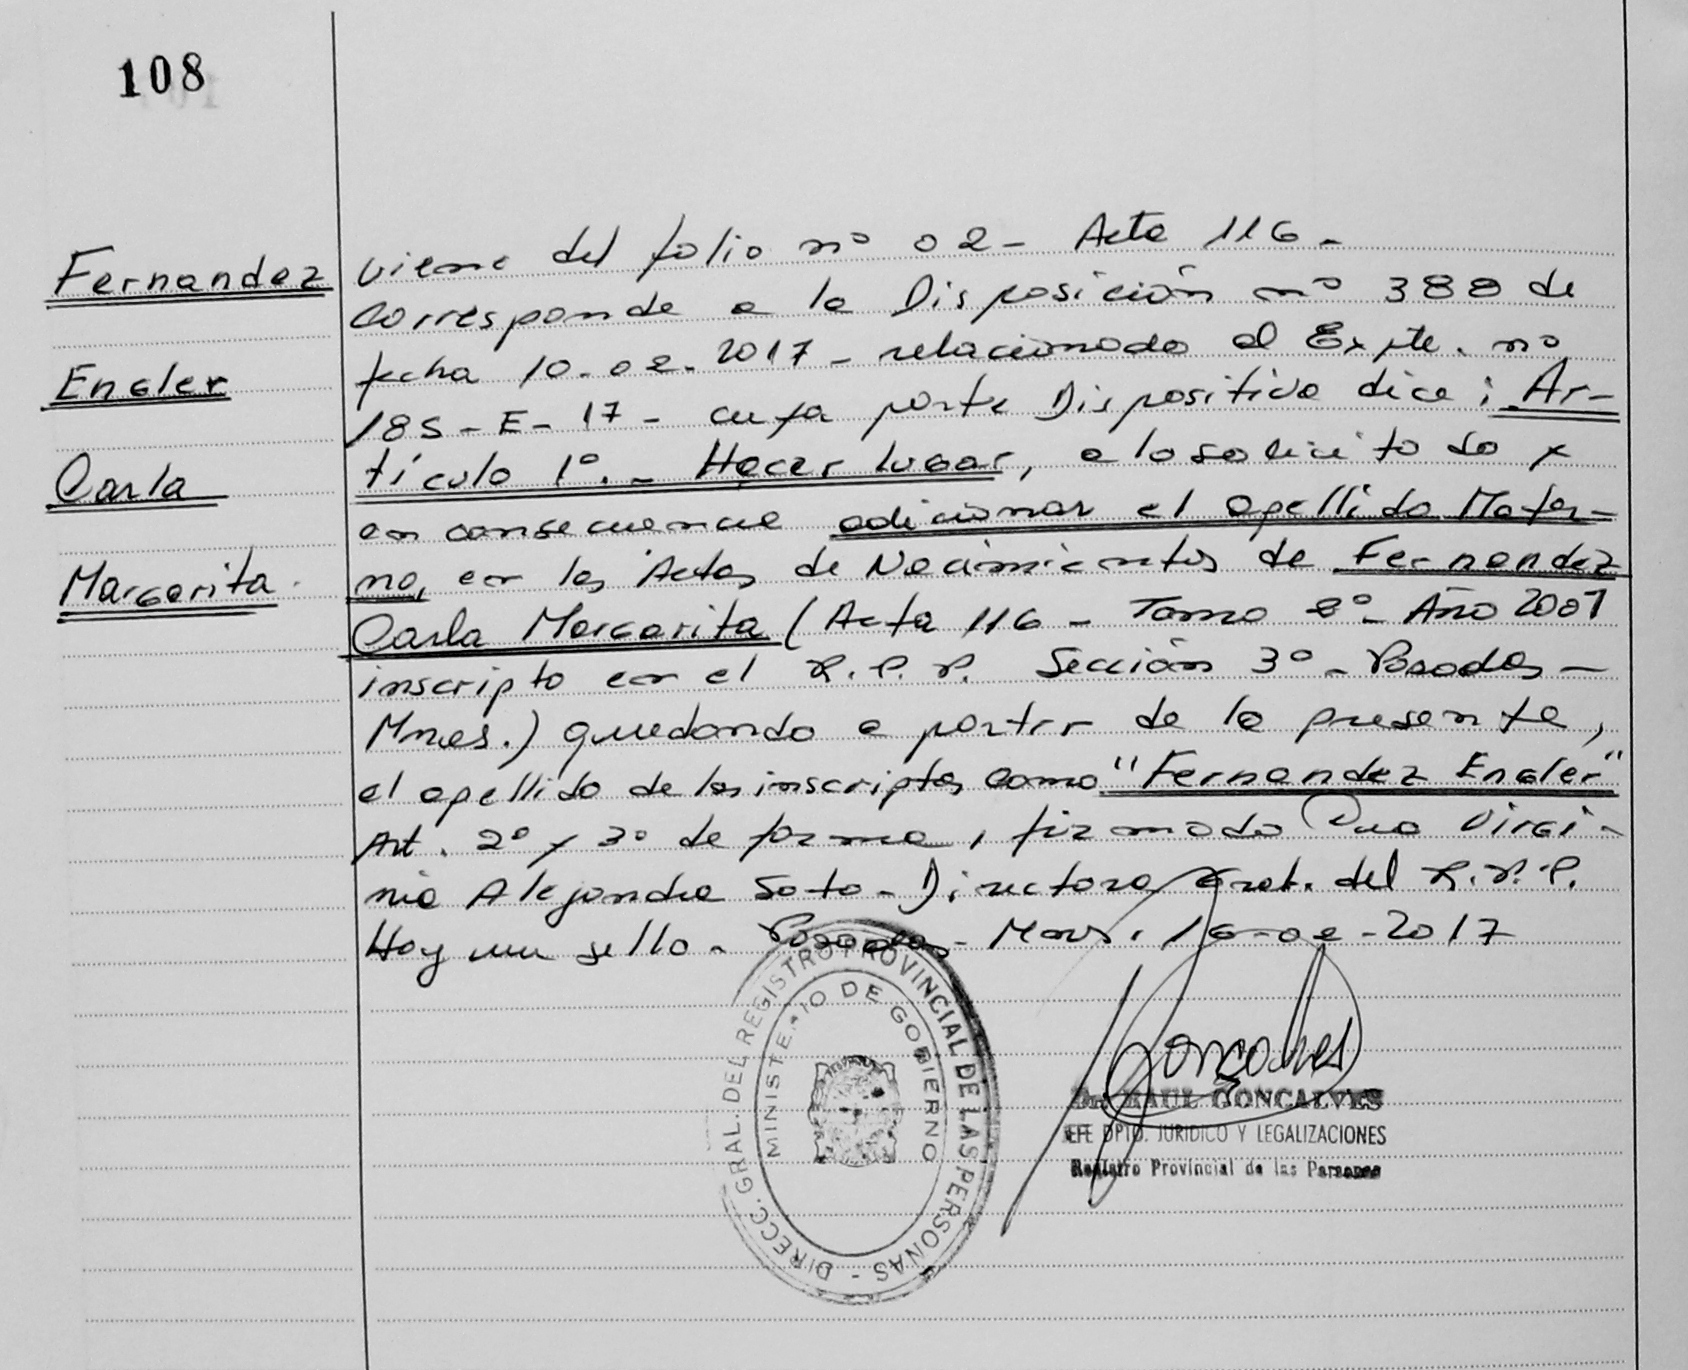 108
Fernandez
Engler
Carla
Margarita.
viene del folio nº 02 - Acta 116 -
Corresponde a la Disposición nº 388 de
fecha 10-02-2017 - relacionado al Expte. nº
185-E-17 - cuya parte Dispositiva dice: Ar-
tículo 1º.- Hacer lugar, a lo solicitado y
en consecuencia adicionar el apellido Mater-
no, en las Actas de Nacimientos de Fernandez
Carla Margarita (Acta 116 - Tomo 2º - Año 2001
inscripto en el R.P.P. Sección 3º - Posadas -
Mnes.) quedando a partir de la presente,
el apellido de los inscriptos como "Fernandez Engler"
Art. 2º y 3º de forma, firmado Dra Virgi-
nia Alejandra Soto - Directora Gral. del R.P.P.
Hay un sello - Posadas - Mnes. 16-02-2017
DIRECC. GRAL. DEL REGISTRO PROVINCIAL DE LAS PERSONAS -
MINISTERIO DE GOBIERNO
Goncalves
Dr. RAUL GONCALVES
JEFE DPTO. JURIDICO Y LEGALIZACIONES
Registro Provincial de las Personas